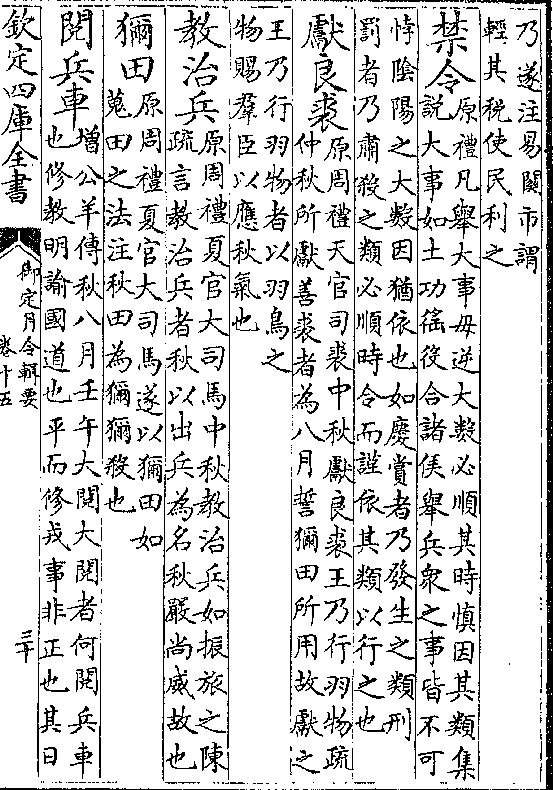 乃遂注易關市謂
輕其税使民利之
禁令原禮凡舉大事毋逆大數必順其時慎因其類集
説大事如土功徭役合諸侯舉兵衆之事皆不可
悖陰陽之大數因猶依也如慶賞者乃發生之類刑
罰者乃肅殺之類必順時令而謹依其類以行之也
獻良裘原周禮天官司裘中秋獻良裘王乃行羽物疏
仲秋所獻善裘者為八月誓獮田所用故獻之
王乃行羽物者以羽鳥之
物賜羣臣以應秋氣也
教治兵原周禮夏官大司馬中秋教治兵如振旅之陳
疏言教治兵者秋以出兵為名秋嚴尚威故也
獮田原周禮夏官大司馬遂以獮田如
蒐田之法注秋田為獮獮殺也
閱兵車增公羊傳秋八月壬午大閱大閱者何閱兵車
也修教明諭國道也平而修戎事非正也其日
欽定四庫全書
御定月令輯要
卷十五
三十